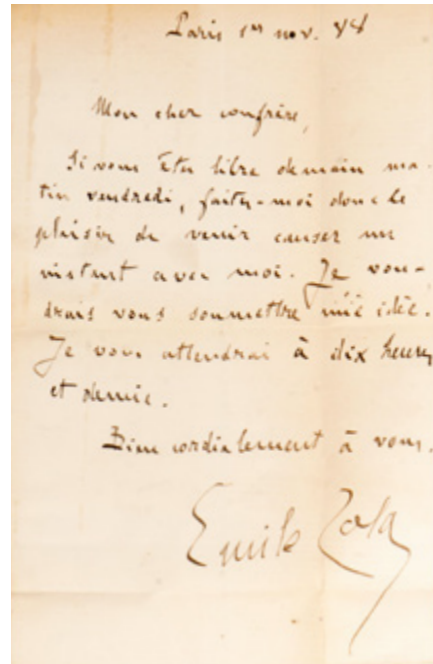 Paris 1er nov. 88
Mon cher confrère,
Si vous êtes libre demain ma-
tin vendredi, faites-moi donc le
plaisir de venir causer un
instant avec moi. Je vou-
drais vous soumettre une idée.
Je vous attendrai à dix heures
et demie.
Bien cordialement à vous.
Emile Zola